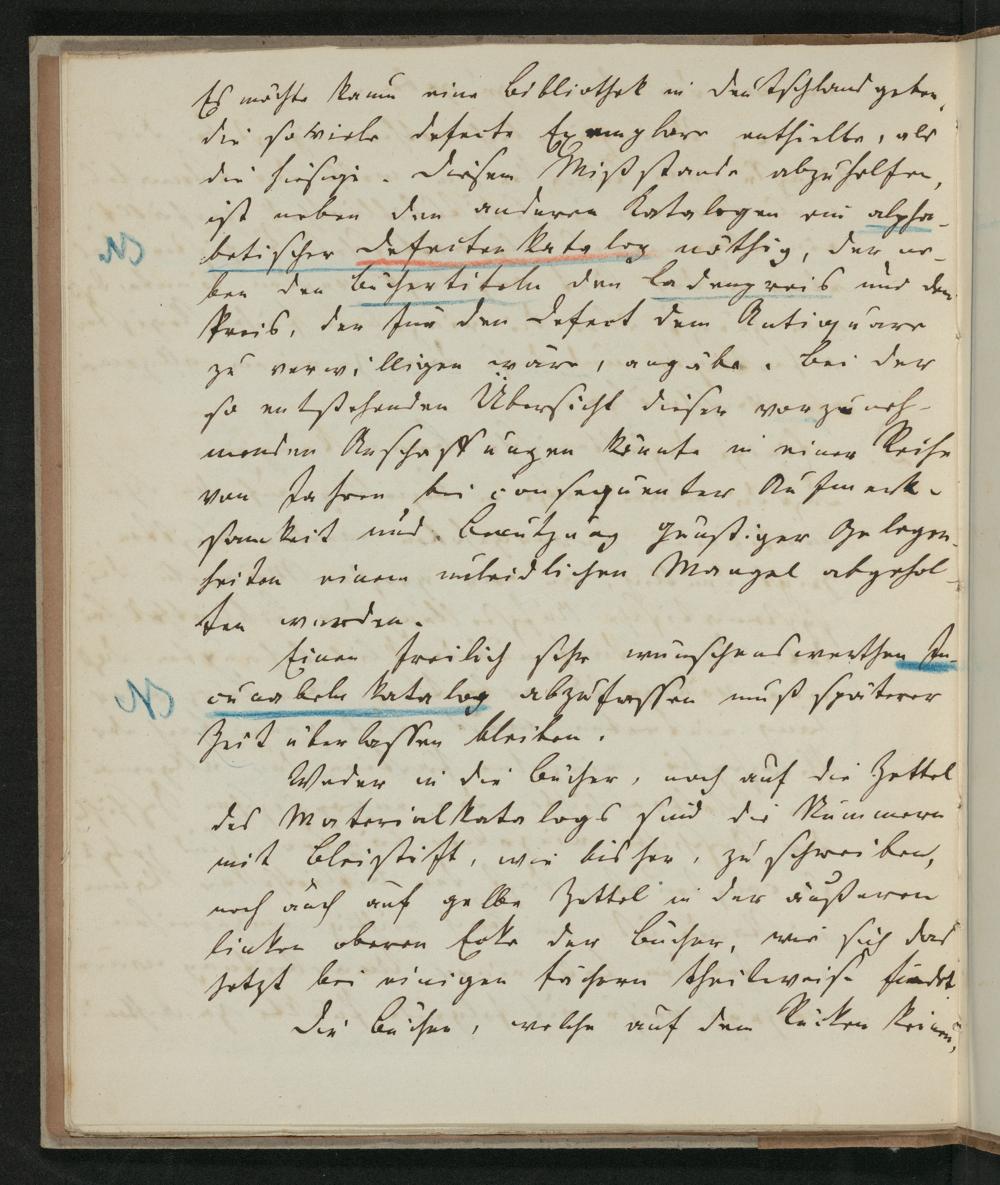 Es möchte kaum eine Bibliothek in Deutschland geben,
die so viele defecte Exemplare enthielte, als
die hiesige. Diesem Mißstande abzuhelfen,
ist neben den anderen Katalogen ein alpha-
NB
betischer Defectenkatalog nöthig, der ne-
ben den Büchertiteln den Ladenpreis und den
Preis, der für den Defect dem Antiquare
zu verwilligen wäre, angäbe. Bei der
so entstehenden Übersicht dieser vorzuneh-
menden Anschaffungen könnte in einer Reihe
von Jahren bei consequenter Aufmerk-
samkeit und Benutzung günstiger Gelegen-
heiten einem unleidlichen Mangel abgehol-
fen werden.
Einen freilich sehr wünschenswerthen In-
NB
cunabelnkatalog abzufassen muß späterer
Zeit überlassen bleiben.
Weder in die Bücher, noch auf die Zettel
des Materialkatalogs sind die Nummern
mit Bleistift, wie bisher, zu schreiben,
noch auch auf gelbe Zettel in der äußeren
linken oberen Ecke der Bücher, wie sich das
jetzt bei einigen Fächern theilweise findet.
Die Bücher, welche auf dem Rücken keinen,